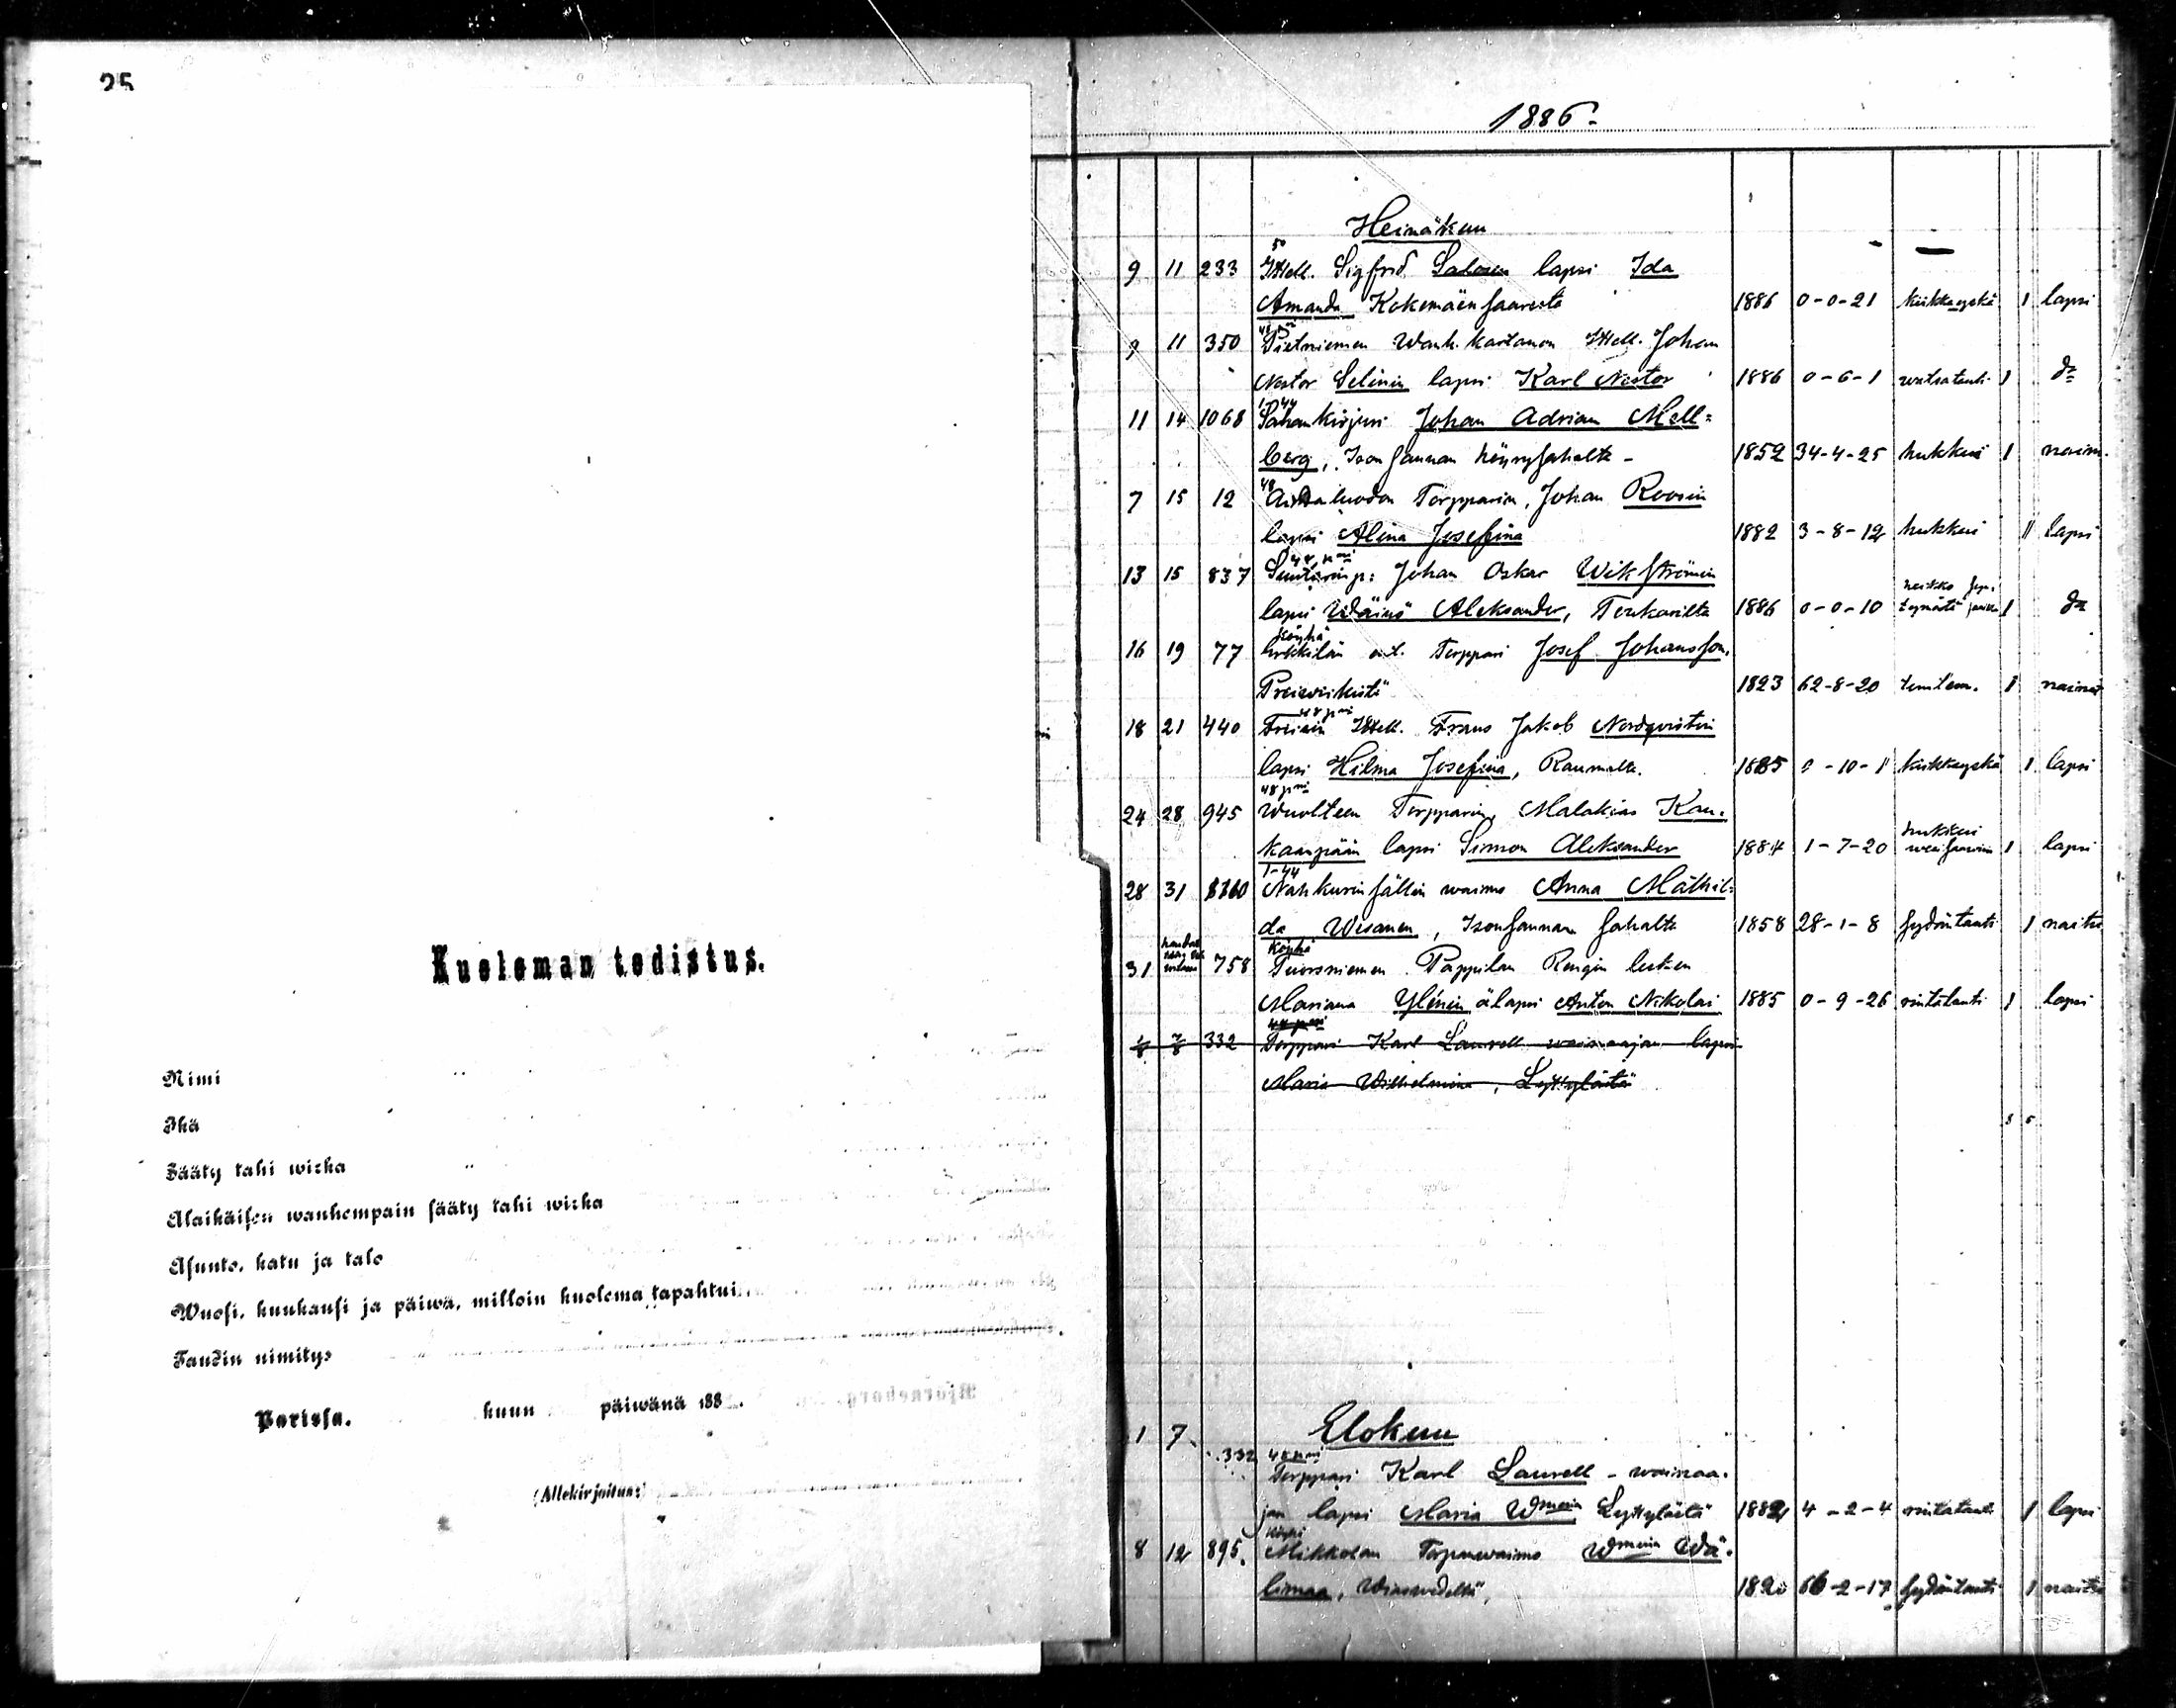 25
Kuoleman todistus.
Nimi
Ikä
Sääty tahi wirka
Alaikäisen wanhempain sääty tahi wirka
Asunto, katu ja talo
Wuosi, kuukausi ja päiwä, milloin kuolema tapahtui
Taudin nimitys
Porissa, kuun päiwänä 188 .
(Allekirjoitus:)
1886.
Heinäkuu
50
9 11 233 Sigfrid Salosen lapsi Ida
Amanda Kokemäensaaresta 1886 0-0-21 kiikkayskä 1 lapsi
9 11 350 Pietniemen Wanh. kartanon Johan
Nestor Selinin lapsi Karl Nestor 1886 0-6-1 watsatauti 1 do
1-44
11 14 1068 Sahankirjuri Johan Adrian Mell=
berg, Isonsannan höyrysahalta - 1852 34-4-25 hukkui 1 nainu.
48
7 15 12 Torpparin, Johan Roosin
lapsi Alina Josefina 1882 3-8-12 hukkui 1 lapsi
13 15 837 Johan Oskar Wikströmin
lapsi Wäinö Aleksander, Toukarilta 1886 0-0-10 heikko 1 do
köyhä
16 19 77 Torppari Josef Johansson,
Preiwiikistä 1823 62-8-20 1 nainut
18 21 440 Frans Jakob Nordqvistin
lapsi Hilma Josefina, Raumalta. 1885 0-10-1 kiikkayskä 1 lapsi
24 28 945 Torpparin, Malakias Kan-
kaanpään lapsi Simon Aleksander 1884 1-7-20 hukkui 1 lapsi
1-44
28 31 1160 Nahkurinsällin waimo Anna Mathil=
da Wesanen, Isonsannan sahalta 1858 28-1-8 sydäntauti 1 naitu
köyhä
31 758 Tuorsniemen Pappilan Rengin lesken
Mariana Ylinin älapsi Anton Nikolai 1885 0-9-26 rintatauti 1 lapsi
1/8 7/8 332 Torppari Karl Laurell waiwaajan lapsi
Maria Wilhelmina, Lyttylästä
5 5
Elokuu
1 7 332 Torppari Karl Laurell - waiwaa-
jan lapsi Maria Wmina Lyttylästä 1882 4-2-4 rintatauti 1 lapsi
köyhä
8 12 895. Mikkolan Torp.waimo Wmina Wä-
limaa, 1820 66-2-17 sydäntauti 1 naitu